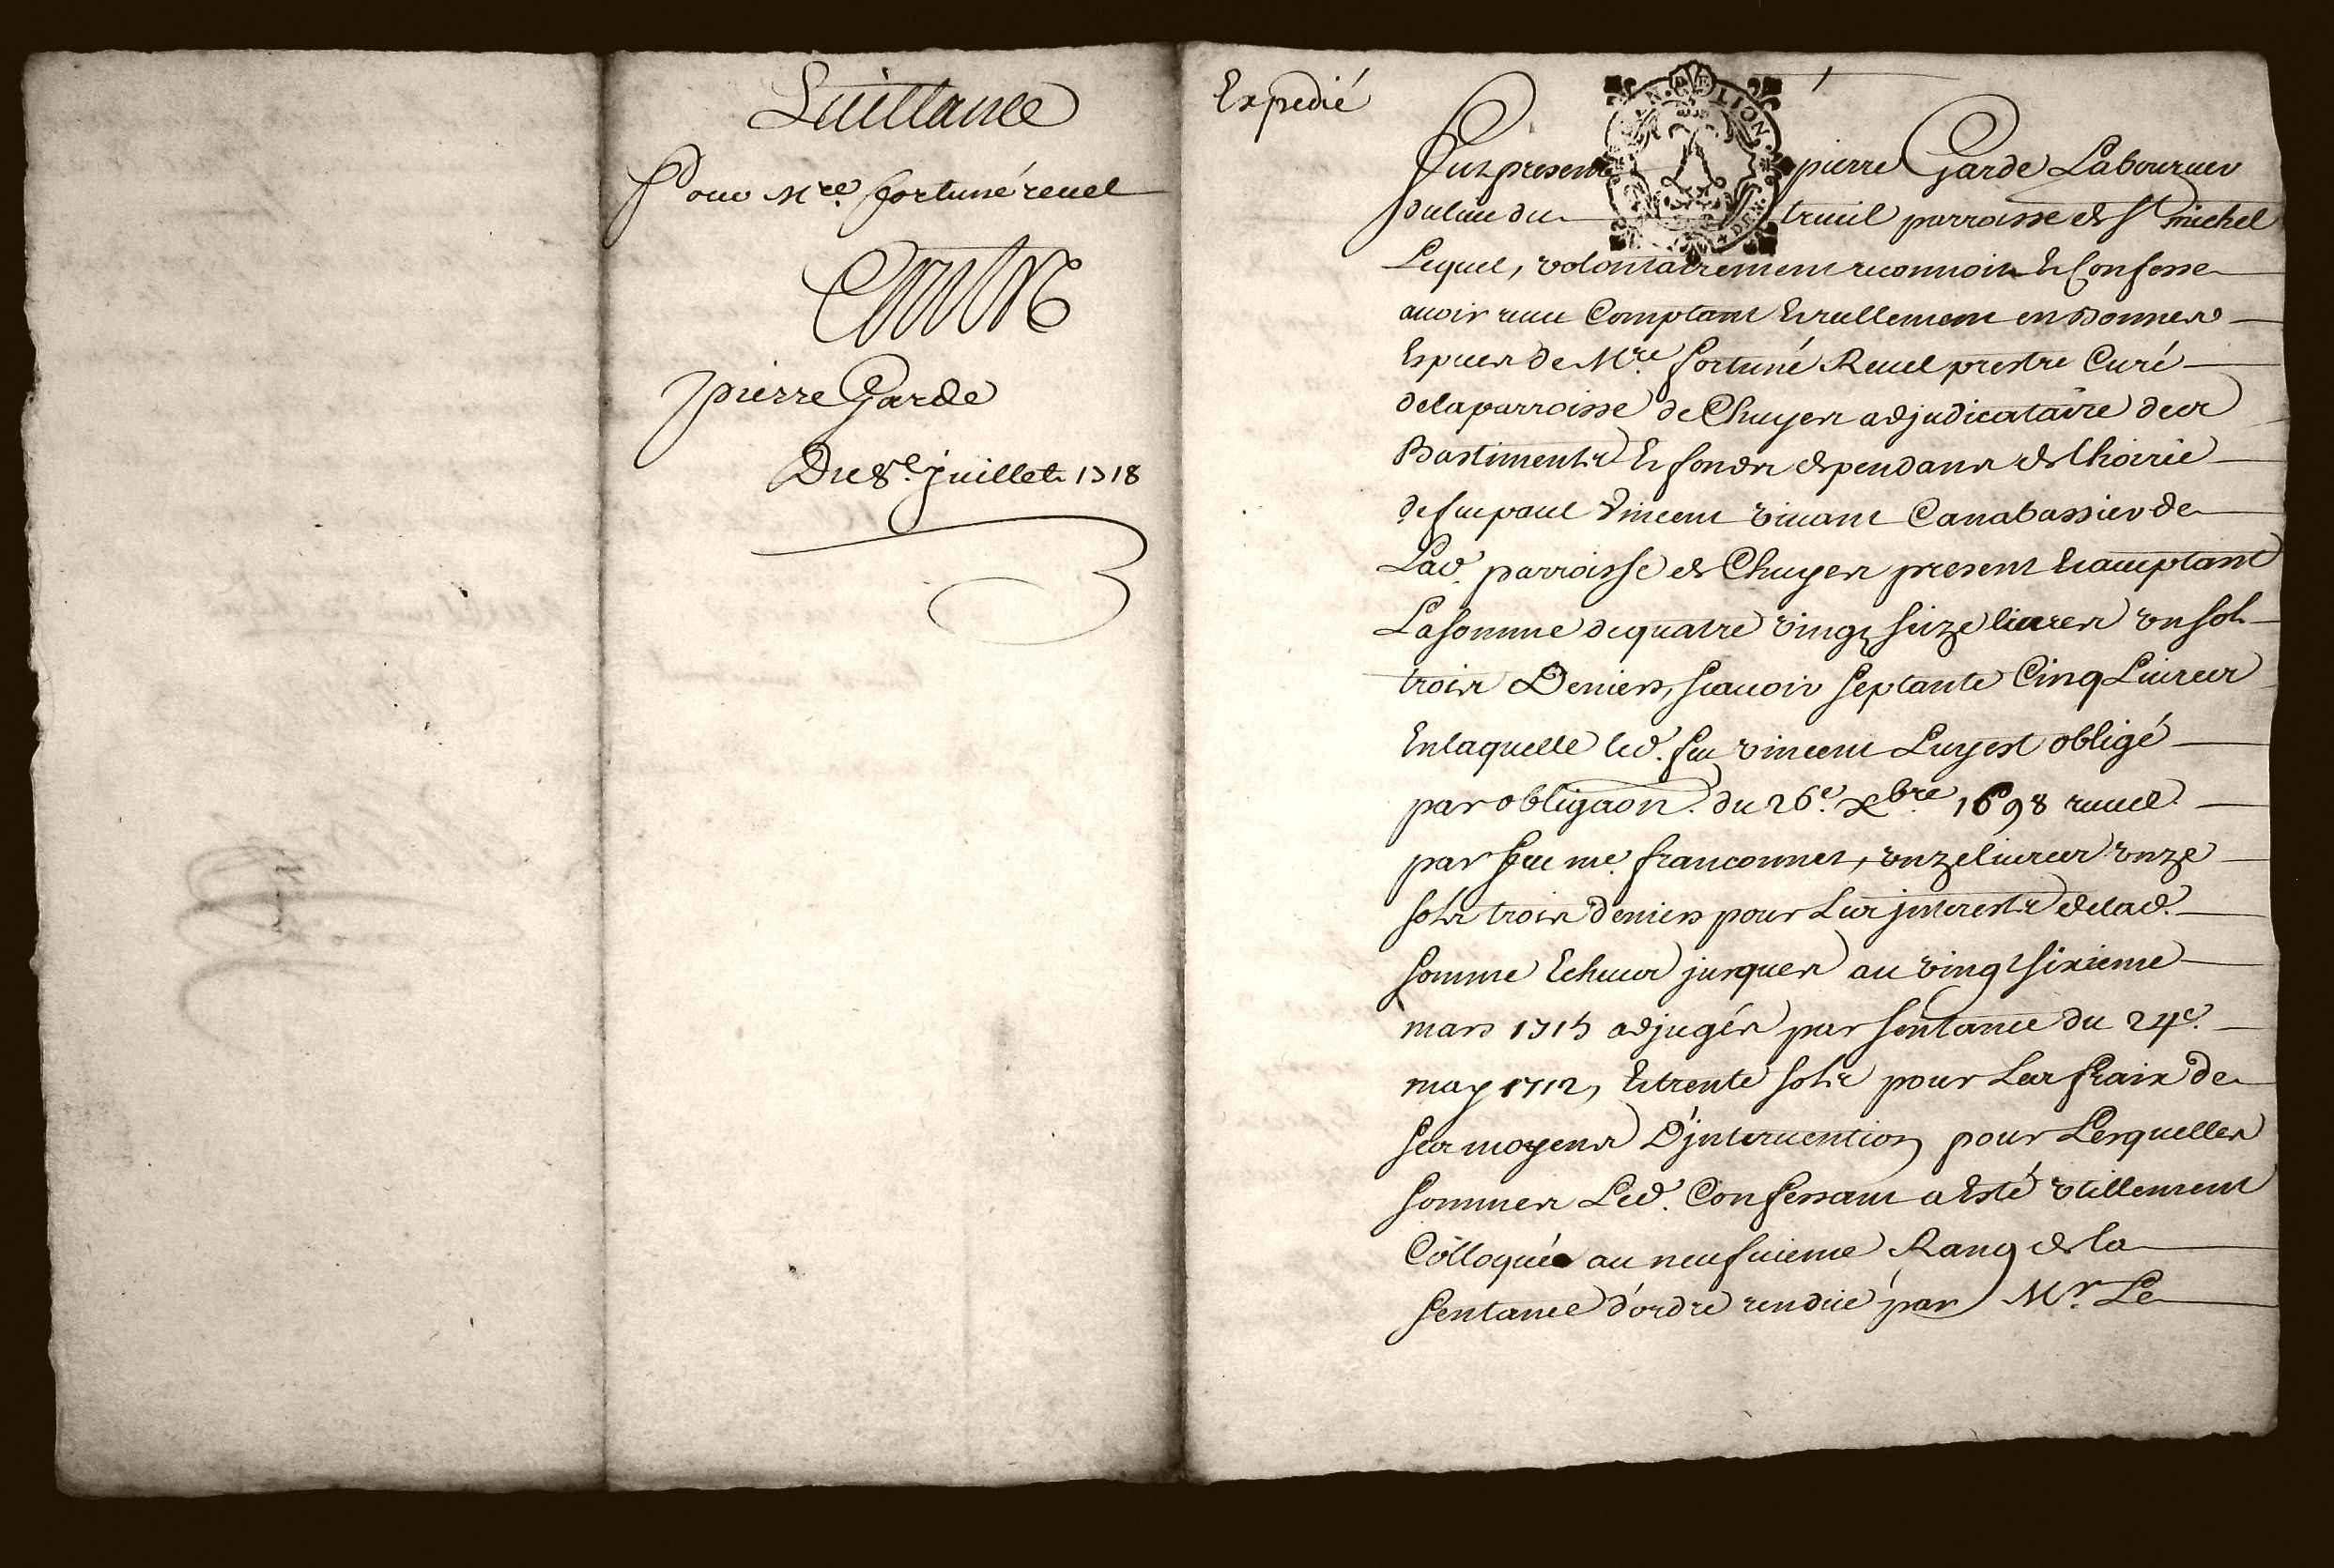 Quittance
Pour Mre. fortuné reuel
Contre
pierre Garde
Du 8e. juillet 1718
Expedié
DE LION
Fut present pierre Garde Laboureur
du lieu du treuil parroisse de St michel
Lequel, volontairement reconnoit Et Confesse
auoir receu Comptant Et reellement en bonnes
Especes de Mre. fortuné Reuel prestre Curé
de la parroisse de Chuyer adjudicataire des
Bastiments Et fonds dependans de l'hoirie
de feu paul Vincent viuant Canabassier de
Lad. parroisse de Chuyer present Et acceptant
La somme de quatre vingt seize liures vn sol
trois Deniers, scauoir septante Cinq Liures
En laquelle led. feu vincent Luy est obligé
par obligaon. du 26e. xbre 1698 receue.
par feu me. franconnet, vnze liures vnze
sols trois deniers pour Les jnterests de lad.
somme Echeus jusques au vingt sixieme
mars 1715 adjugés par sentance du 24e.
may 1712, Et trente sols pour Les fraix de
ses moyens D'jnteruention pour Lesquelles
sommes Led. Confessant a Esté vtillement
Colloqué au neufuieme Rang de la
sentance d'ordre rendüe par Mr. Le